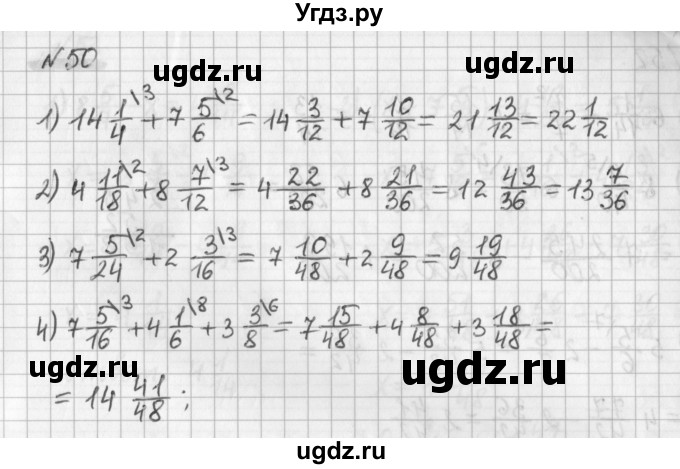 Угдз.ру
№50
ugdz.ru ugdz.ru
1) 14 1/4\3 + 7 5/6\2 = 14 3/12 + 7 10/12 = 21 13/12 = 22 1/12
2) 4 11/18\2 + 8 7/12\3 = 4 22/36 + 8 21/36 = 12 43/36 = 13 7/36
3) 7 5/24\2 + 2 3/16\3 = 7 10/48 + 2 9/48 = 9 19/48
4) 7 5/16\3 + 4 1/6\8 + 3 3/8\6 = 7 15/48 + 4 8/48 + 3 18/48 =
ugdz.ru ugdz.ru
= 14 41/48 ;
ugdz.ru